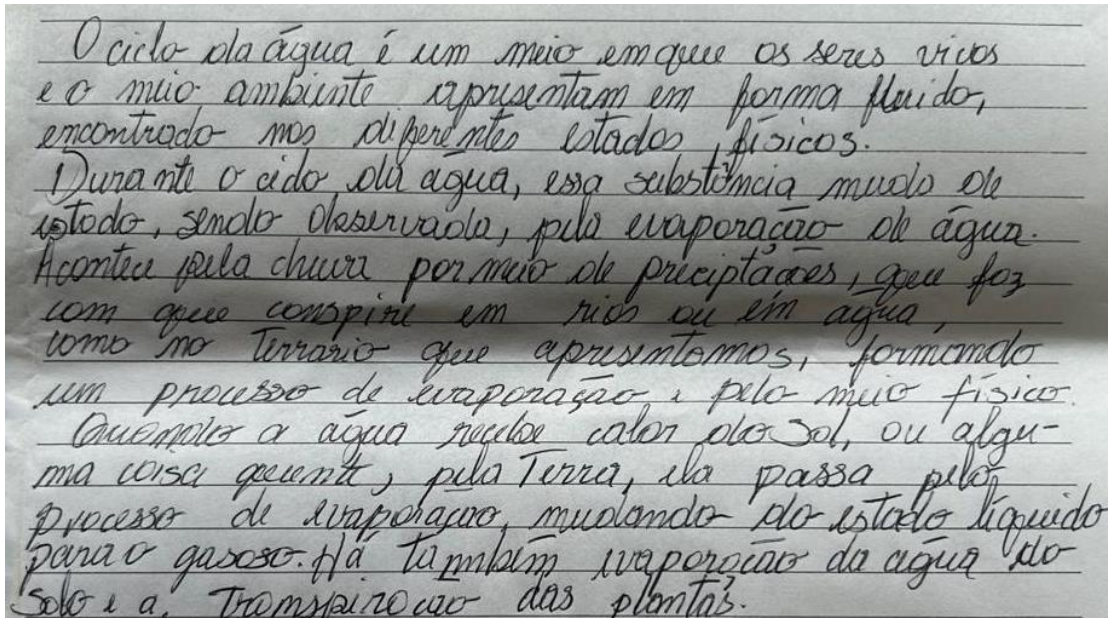 O ciclo da água é um meio em que os seres vivos
e o meio ambiente apresentam em forma fluido,
encontrado nos diferentes estados físicos.
Durante o ciclo da água, essa substância muda de
estado, sendo observada, pela evaporação de água.
Acontece pela chuva por meio de preciptações, que faz
com que conspire em rios ou em água,
como no Terrário que apresentamos, formando
um processo de evaporação e pelo meio físico.
Quando a água recebe calor do Sol, ou algu-
ma coisa quente, pela Terra, ela passa pelo
processo de evaporação, mudando do estado líquido
para o gasoso. Há também evaporação da água do
solo e a transpiração das plantas.